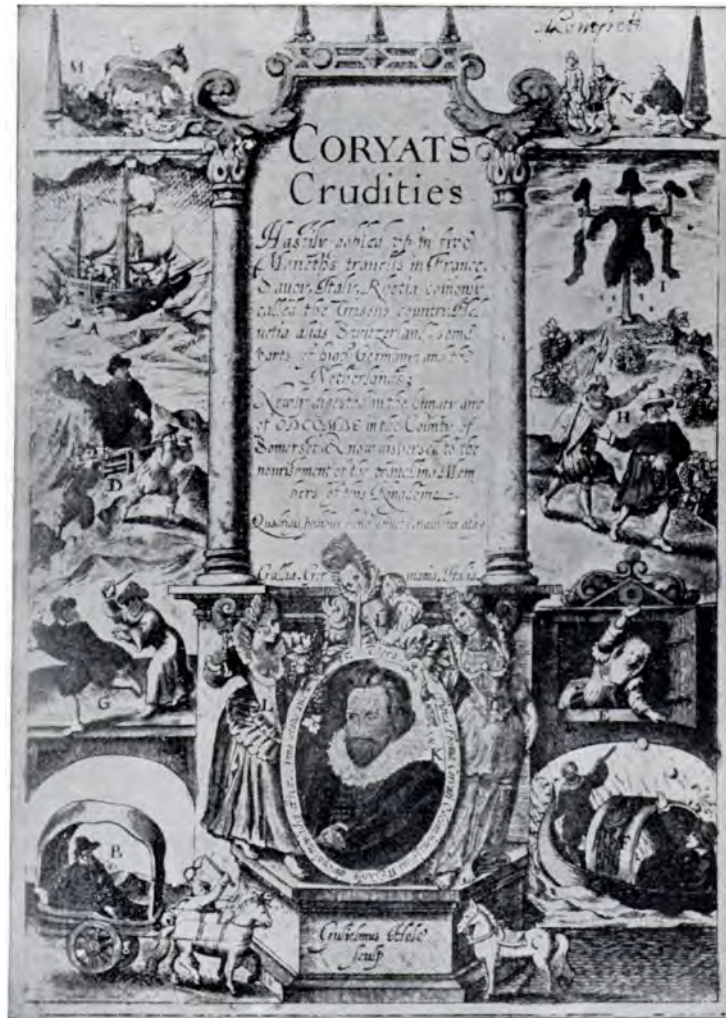 M
N
CORYATS
Crudities
Hastily gobled vp in five
Moneths travells in France,
Savoy, Italy, Rhetia comonly
called the Grisons country, Hel=
uetia alias Switzerland, some
parts of high Germany, and the
Netherlands;
Newly digested in the hungry aire
of ODCOMBE in the County of
Somerset, & now dispersed to the
nourishment of the travelling Mem=
bers of this Kingdome
A
I
H
D
Gallia. Ger mania. Italia.
G
E
L
L
K
B
F
Gulielmus Hole
sculp